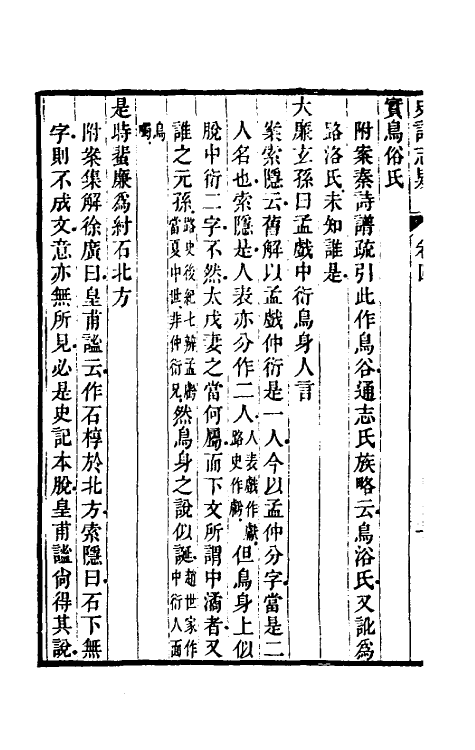 史記志疑 卷四
實鳥俗氏
附案秦詩譜疏引此作鳥谷通志氏族略云鳥浴氏又訛為
路洛氏未知誰是
大廉玄孫曰孟戲中衍鳥身人言
案索隱云舊解以孟戲仲衍是一人今以孟仲分字當是二
人名也索隱是人表亦分作二人人表戲作獻路史作虧但鳥身上似
脫中衍二字不然太戊妻之當何屬而下文所謂中潏者又
誰之元孫路史後紀七辨孟虧當夏中世非仲衍兄然鳥身之說似誕趙世家作中衍人面
鳥噣
是時蜚廉為紂石北方
附案集解徐廣曰皇甫謐云作石椁於北方索隱曰石下無
字則不成文意亦無所見必是史記本脫皇甫謐尙得其說